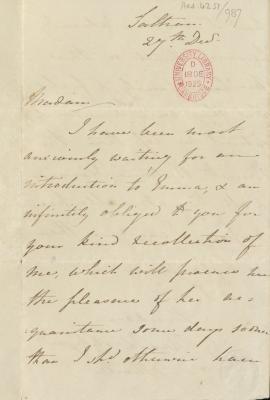 Add. 4251/987
Saltram
27th Decr.
UNIVERSITY LIBRARY
18 DE
1925
Madam
I have been most
anxiously waiting for an
introduction to Emma, & am
infinitely obliged to you for
your kind recollection of
me, which will procure me
the pleasure of her ac-
quaintance some days sooner
than I shd. otherwise have